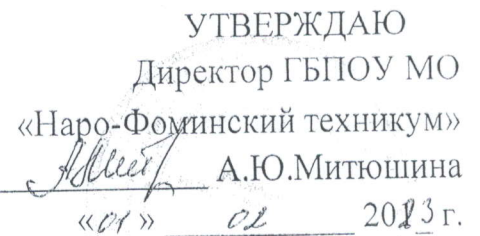 УТВЕРЖДАЮ
Директор ГБПОУ МО
«Наро-Фоминский техникум»
А.Ю.Митюшина
«01» 02 2023 г.